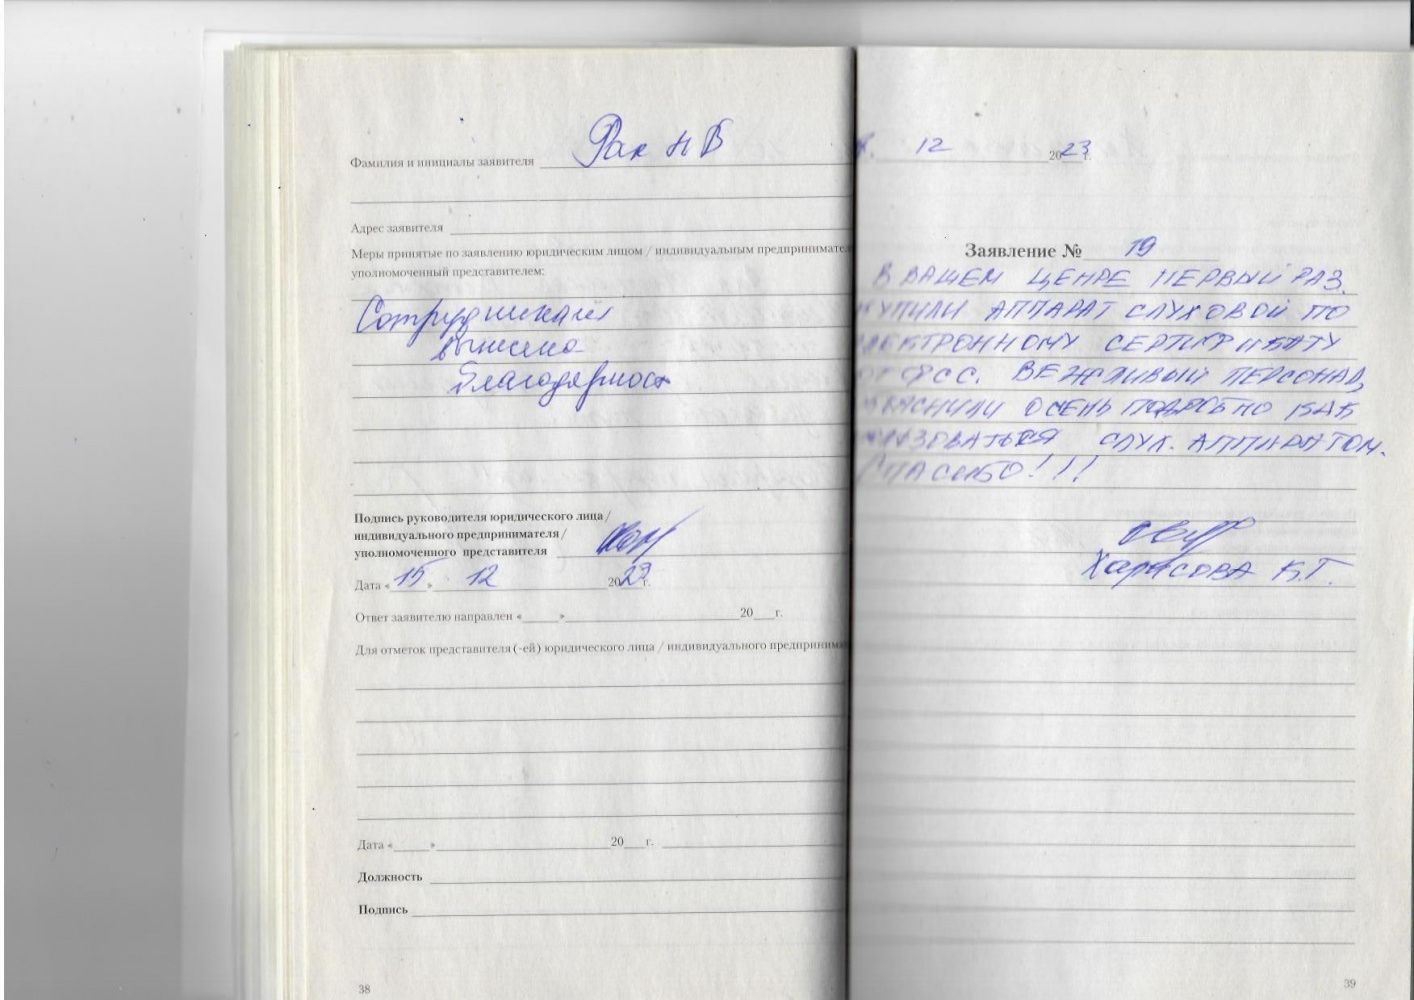 Фамилия и инициалы заявителя Рак Н В
Адрес заявителя
Меры принятые по заявлению юридическим лицом / индивидуальным предпринимател
уполномоченный представителем:
Сотрудникам
вынесена
благодарность
Подпись руководителя юридического лица/
индивидуального предпринимателя/
уполномоченного представителя
Дата «15» 12 2023г.
Ответ заявителю направлен «____»____20__г.
Для отметок представителя (-ей) юридического лица / индивидуального предприним
Дата «____»____20__г.
Должность
Подпись
38
12 2023г.
Заявление № 19
В ВАШЕМ ЦЕНРЕ ПЕРВЫЙ РАЗ.
КУПИЛИ АППАРАТ СЛУХОВОЙ ПО
ЭЛЕКТРОННОМУ СЕРТИФИКАТУ
ОТ ФСС. ВЕЖЛИВЫЙ ПЕРСОНАЛ,
ОЧЕНЬ ПОДРОБНО КАК
ПОЛЬЗОВАТЬСЯ СЛУХ. АППАРАТОМ.
СПАСИБО!!!
Харисова К.Г.
39